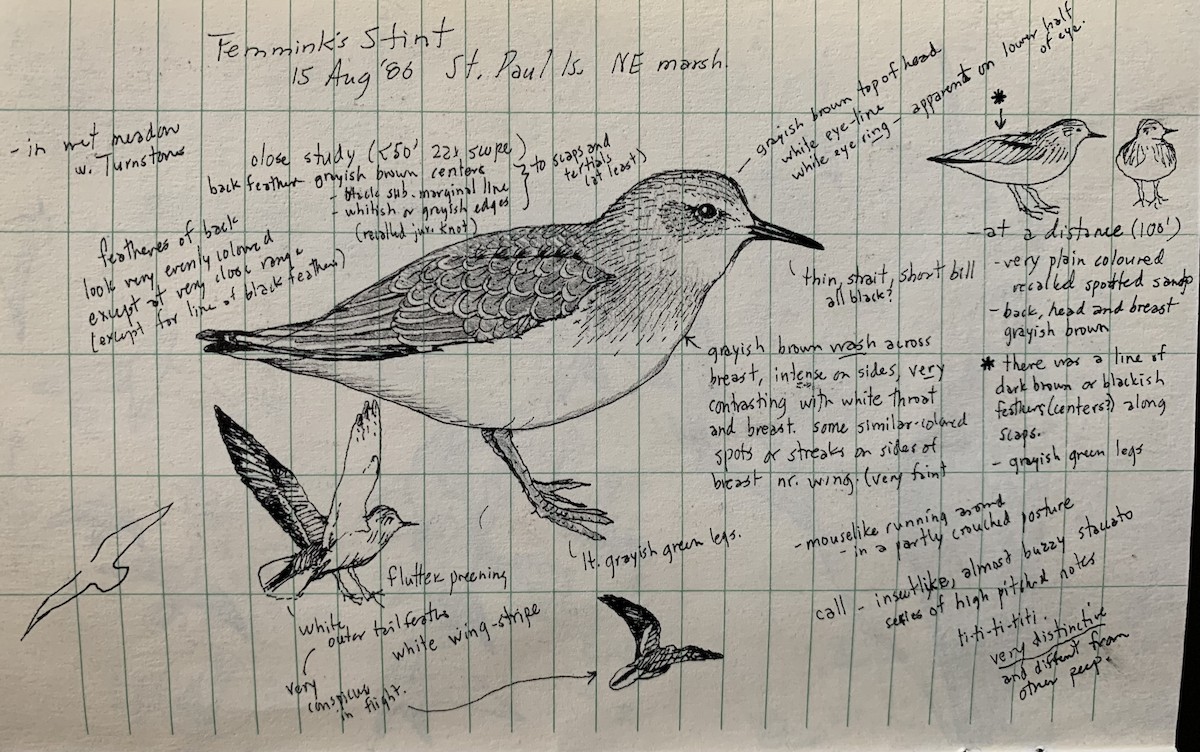 Temmink's Stint
15 Aug '86 St. Paul Is. NE marsh.
- in wet meadow
w. Turnstones
close study (<50' 22x scope)
back feather grayish brown centers
- black sub-marginal line
- whitish or grayish edges
(recalled juv. knot)
} to scaps and
tertials
(at least)
feathers of back
look very evenly coloured
except at very close range
(except for line of black feathers)
grayish brown top of head
white eye-line
white eye ring - apparent on lower half
of eye.
*
thin, strait, short bill
all black?
grayish brown wash across
breast, intense on sides, very
contrasting with white throat
and breast. some similar-colored
spots or streaks on sides of
breast nr. wing. (very faint
- at a distance (100')
- very plain coloured
recalled spotted sandp
- back, head and breast
grayish brown
* there was a line of
dark brown or blackish
feathers (centers?) along
scaps.
- grayish green legs
lt. grayish green legs.
- mouselike running around
- in a partly crouched posture
call - insectlike, almost buzzy staccato
series of high pitched notes
ti-ti-ti-titi.
very distinctive
and different from
other peep.
flutter preening
white
outer tail feathers
white wing-stripe
very
conspicus
in flight.